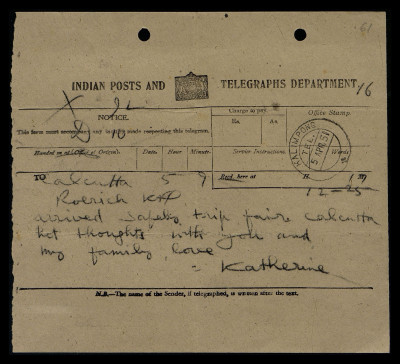 61
INDIAN POSTS AND TELEGRAPHS DEPARTMENT
16
X
NOTICE.
Charge to pay.
Office Stamp.
This form must accompany any inquiry made respecting this telegram.
Rs. As.
D 10
KALIMPONG
TEL.
Handed in at (Office of Origin). Date. Hour. Minute. Service Instructions. Words.
TO
Calcutta 5 9
Recd here at H. M.
12-25
Roerich KPG
arrived safely trip fair Calcutta
hot thoughts with you and
my family love
= Katherine
N.B.—The name of the Sender, if telegraphed, is written after the text.